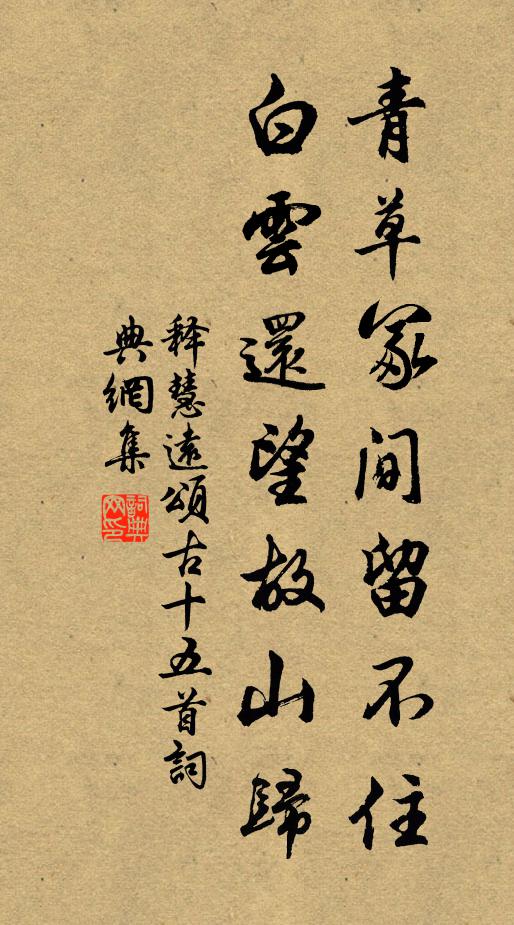 青草冢間留不住
白雲還望故山歸
釋慧遠頌古十五首詞
典網集
詞典網印